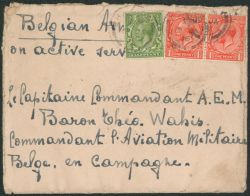 Belgian Arm
on active serv
Le Capitaine Commandant A.E.M.
Baron Théo. Wahis.
Commandant l'Aviation Militaire
Belge, en Campagne.